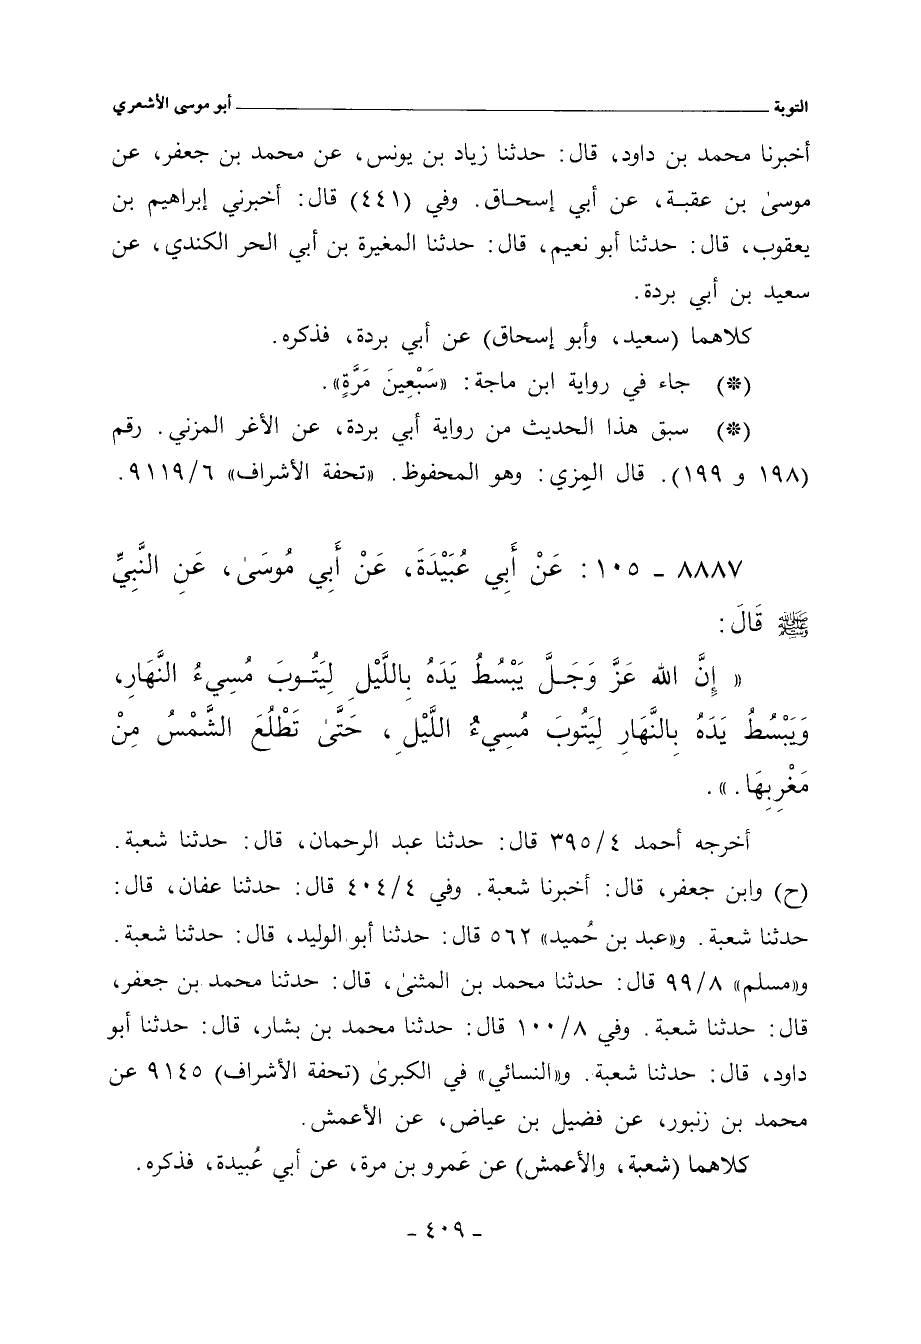 التوبة ــــــــــــــــ أبو موسى الأشعري
أخبرنا محمد بن داود، قال: حدثنا زياد بن يونس، عن محمد بن جعفر، عن
موسىٰ بن عقبـة، عن أبي إسحـاق. وفي (٤٤١) قال: أخبرني إبراهيم بن
يعقوب، قال: حدثنا أبو نعيم، قال: حدثنا المغيرة بن أبي الحر الكندي، عن
سعيد بن أبي بردة.
كلاهما (سعيد، وأبو إسحاق) عن أبي بردة، فذكره.
(*) جاء في رواية ابن ماجة: «سَبْعِينَ مَرَّةٍ».
(*) سبق هذا الحديث من رواية أبي بردة، عن الأغر المزني. رقم
(١٩٨ و ١٩٩). قال المِزي: وهو المحفوظ. «تحفة الأشراف» ٩١١٩/٦.
٨٨٨٧ ـ ١٠٥: عَنْ أَبِي عُبَيْدَةَ، عَنْ أَبِي مُوسَىٰ، عَنِ النَّبِيِّ
ﷺ قَالَ:
« إِنَّ الله عَزَّ وَجَـلَّ يَبْسُطُ يَدَهُ بِاللَّيْلِ لِيَتُـوبَ مُسِيءُ النَّهَارِ،
وَيَبْسُطُ يَدَهُ بِالنَّهَارِ لِيَتُوبَ مُسِيءُ اللَّيْلِ، حَتَّىٰ تَطْلُعَ الشَّمْسُ مِنْ
مَغْرِبِهَا.».
أخرجه أحمد ٣٩٥/٤ قال: حدثنا عبد الرحمان، قال: حدثنا شعبة.
(ح) وابن جعفر، قال: أخبرنا شعبة. وفي ٤٠٤/٤ قال: حدثنا عفان، قال:
حدثنا شعبة. و«عبد بن حُميد» ٥٦٢ قال: حدثنا أبو الوليد، قال: حدثنا شعبة.
و«مسلم» ٩٩/٨ قال: حدثنا محمد بن المثنىٰ، قال: حدثنا محمد بن جعفر،
قال: حدثنا شعبة. وفي ١٠٠/٨ قال: حدثنا محمد بن بشار، قال: حدثنا أبو
داود، قال: حدثنا شعبة. و«النسائي» في الكبرىٰ (تحفة الأشراف) ٩١٤٥ عن
محمد بن زنبور، عن فضيل بن عياض، عن الأعمش.
كلاهما (شعبة، والأعمش) عن عَمرو بن مرة، عن أبي عُبيدة، فذكره.
ـ ٤٠٩ ـ